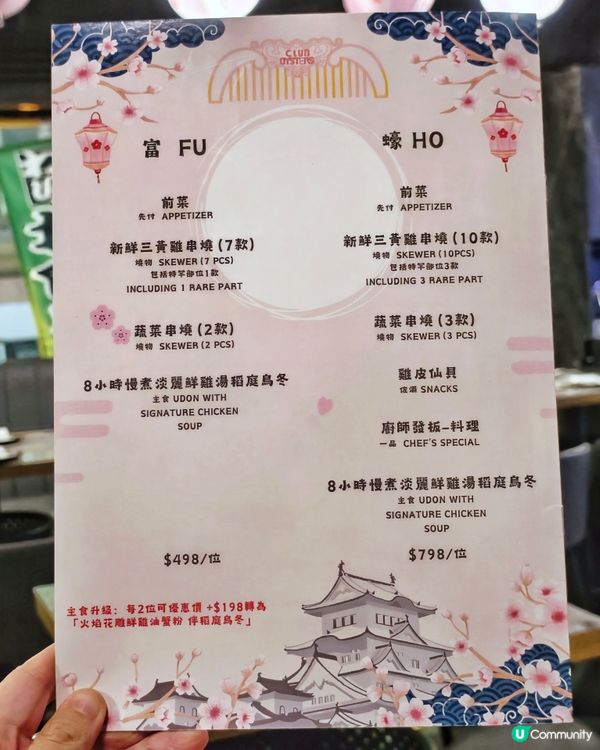 CLUB
OYSTER
富 FU
前菜
先付 APPETIZER
新鮮三黃雞串燒(7款)
燒物 SKEWER (7 PCS)
包括特罕部位1款
INCLUDING 1 RARE PART
蔬菜串燒(2款)
燒物 SKEWER (2 PCS)
8小時慢煮淡麗鮮雞湯稻庭烏冬
主食 UDON WITH
SIGNATURE CHICKEN
SOUP
$498/位
蠔 HO
前菜
先付 APPETIZER
新鮮三黃雞串燒(10款)
燒物 SKEWER (10PCS)
包括特罕部位3款
INCLUDING 3 RARE PART
蔬菜串燒(3款)
燒物 SKEWER (3 PCS)
雞皮仙貝
佐酒 SNACKS
廚師發板-料理
一品 CHEF'S SPECIAL
8小時慢煮淡麗鮮雞湯稻庭烏冬
主食 UDON WITH
SIGNATURE CHICKEN
SOUP
$798/位
主食升級: 每2位可優惠價 +$198轉為
「火焰花雕鮮雞油蟹粉 伴稻庭烏冬」
U Community